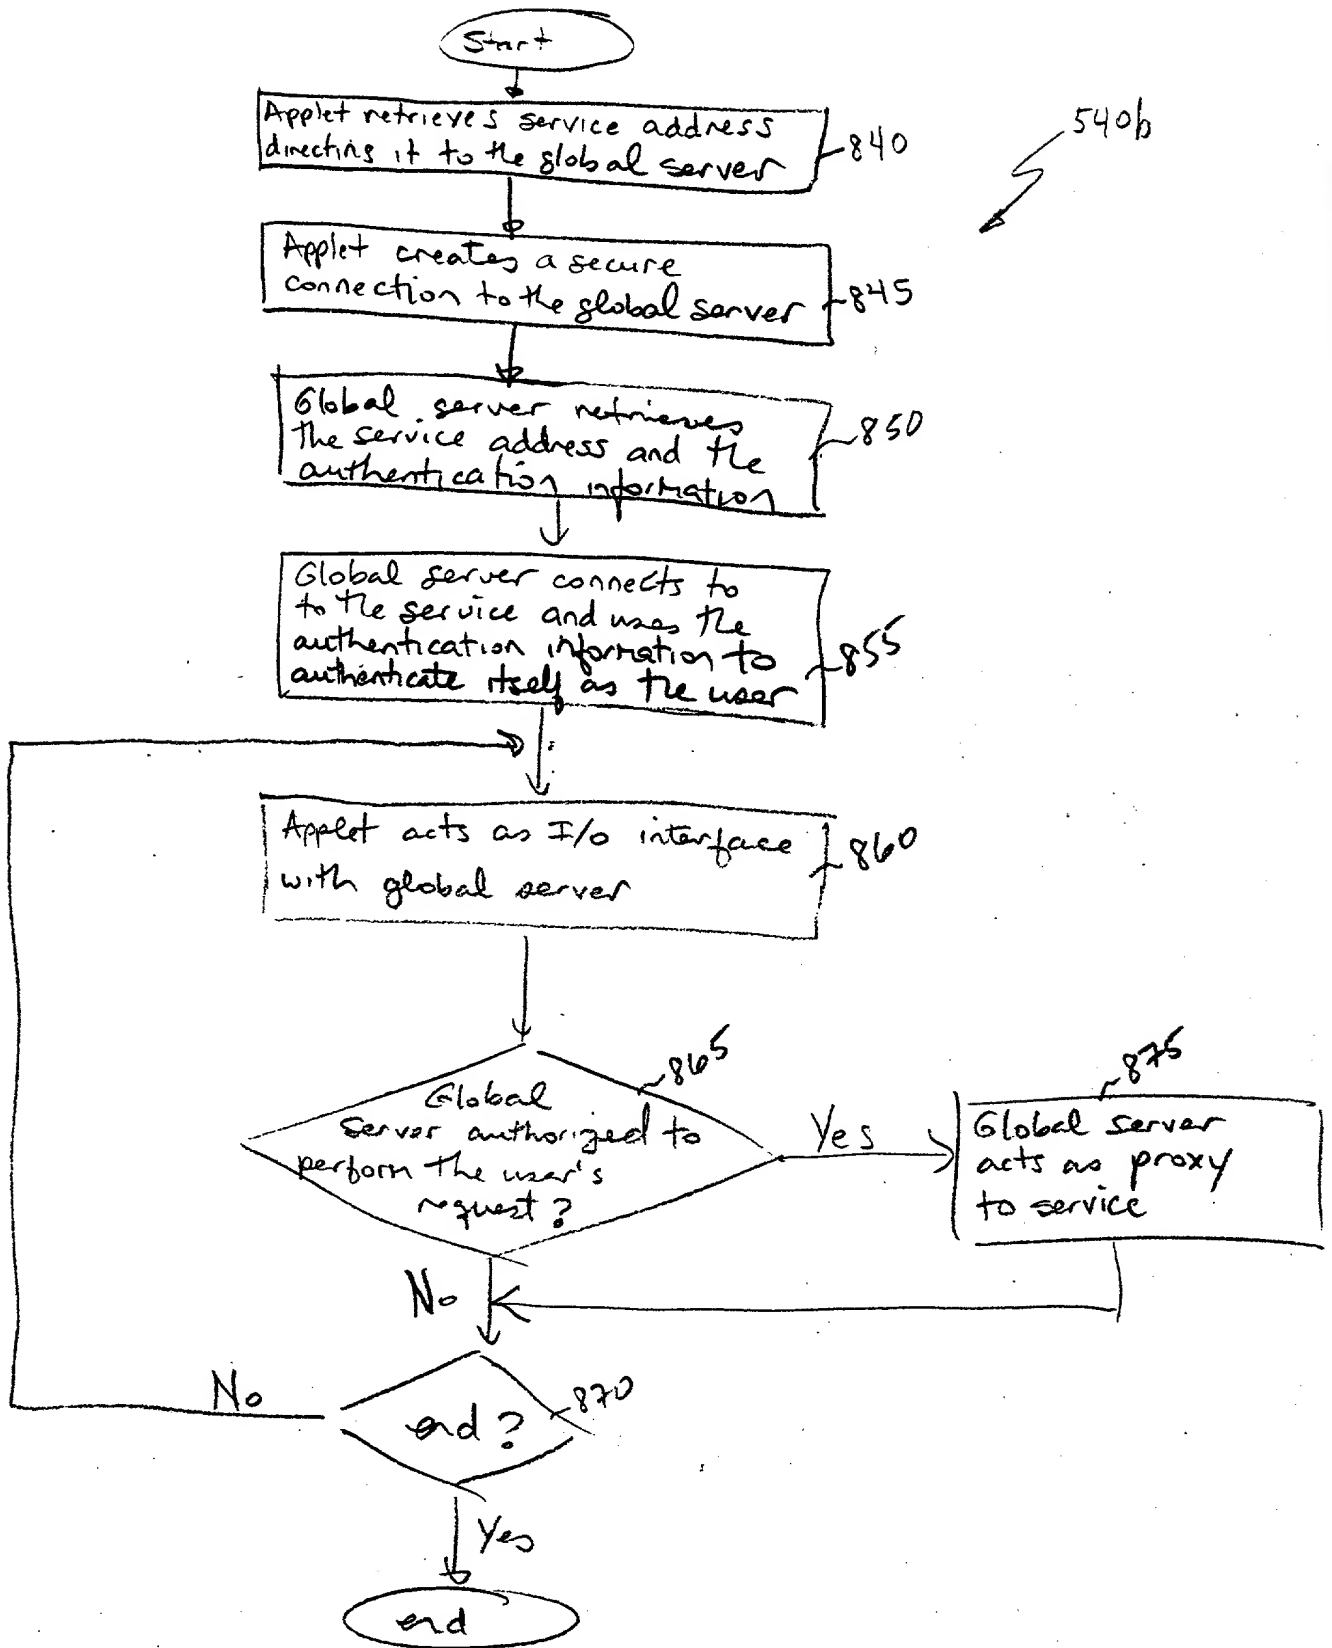 Start
Applet retrieves service address
directing it to the global server
840
540b
Applet creates a secure
connection to the global server
845
Global server retrieves
the service address and the
authentication information
850
Global server connects to
to the service and uses the
authentication information to
authenticate itself as the user
855
Applet acts as I/O interface
with global server
860
865
Global
Server authorized to
perform the user's
request?
Yes
875
Global server
acts as proxy
to service
No
No
end?
870
Yes
end